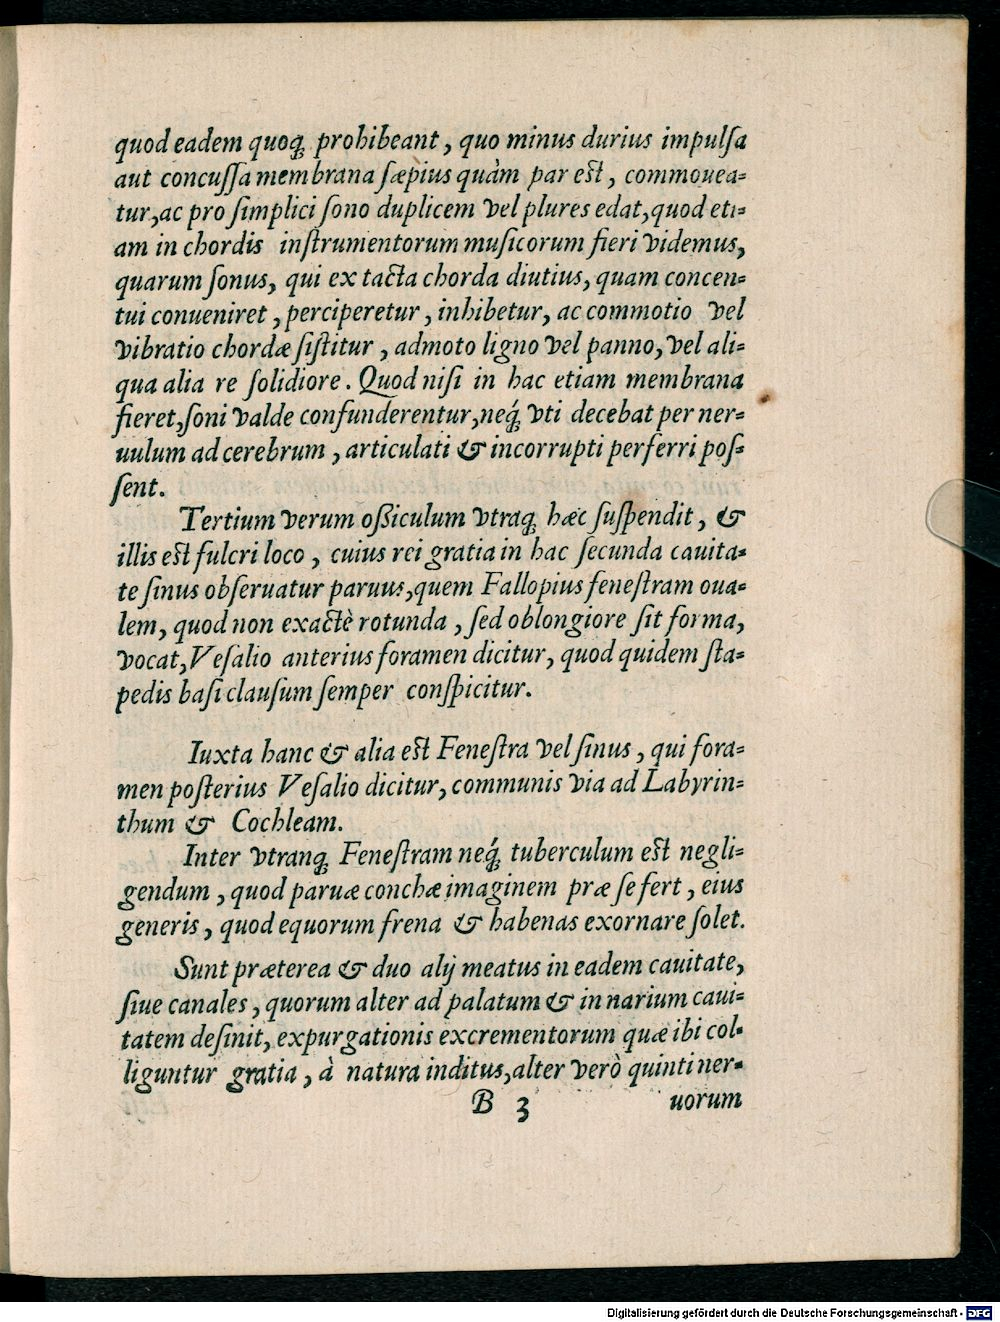 quod eadem quoq́; prohibeant, quo minus durius impulſa
aut concuſſa membrana ſæpius quàm par eſt, commouea=
tur, ac pro ſimplici ſono duplicem vel plures edat, quod eti=
am in chordis inſtrumentorum muſicorum fieri videmus,
quarum ſonus, qui ex tacta chorda diutius, quam concen=
tui conueniret, perciperetur, inhibetur, ac commotio vel
vibratio chordæ ſiſtitur, admoto ligno vel panno, vel ali=
qua alia re ſolidiore. Quod niſi in hac etiam membrana
fieret, ſoni valde confunderentur, neq́; vti decebat per ner=
uulum ad cerebrum, articulati & incorrupti perferri poſ=
ſent.
Tertium verum oßiculum vtraq; hæc ſuſpendit, &
illis eſt fulcri loco, cuius rei gratia in hac ſecunda cauita=
te ſinus obſeruatur paruus, quem Fallopius feneſtram oua=
lem, quod non exactè rotunda, ſed oblongiore ſit forma,
vocat, Veſalio anterius foramen dicitur, quod quidem ſta=
pedis baſi clauſum ſemper conſpicitur.
Iuxta hanc & alia eſt Feneſtra vel ſinus, qui fora=
men poſterius Veſalio dicitur, communis via ad Labyrin=
thum & Cochleam.
Inter vtranq; Feneſtram neq́; tuberculum eſt negli=
gendum, quod paruæ conchæ imaginem præ ſe fert, eius
generis, quod equorum frena & habenas exornare ſolet.
Sunt præterea & duo alij meatus in eadem cauitate,
ſiue canales, quorum alter ad palatum & in narium caui=
tatem deſinit, expurgationis excrementorum quæ ibi col=
liguntur gratia, à natura inditus, alter verò quinti ner=
B 3 uorum
Digitalisierung gefördert durch die Deutsche Forschungsgemeinschaft - DFG